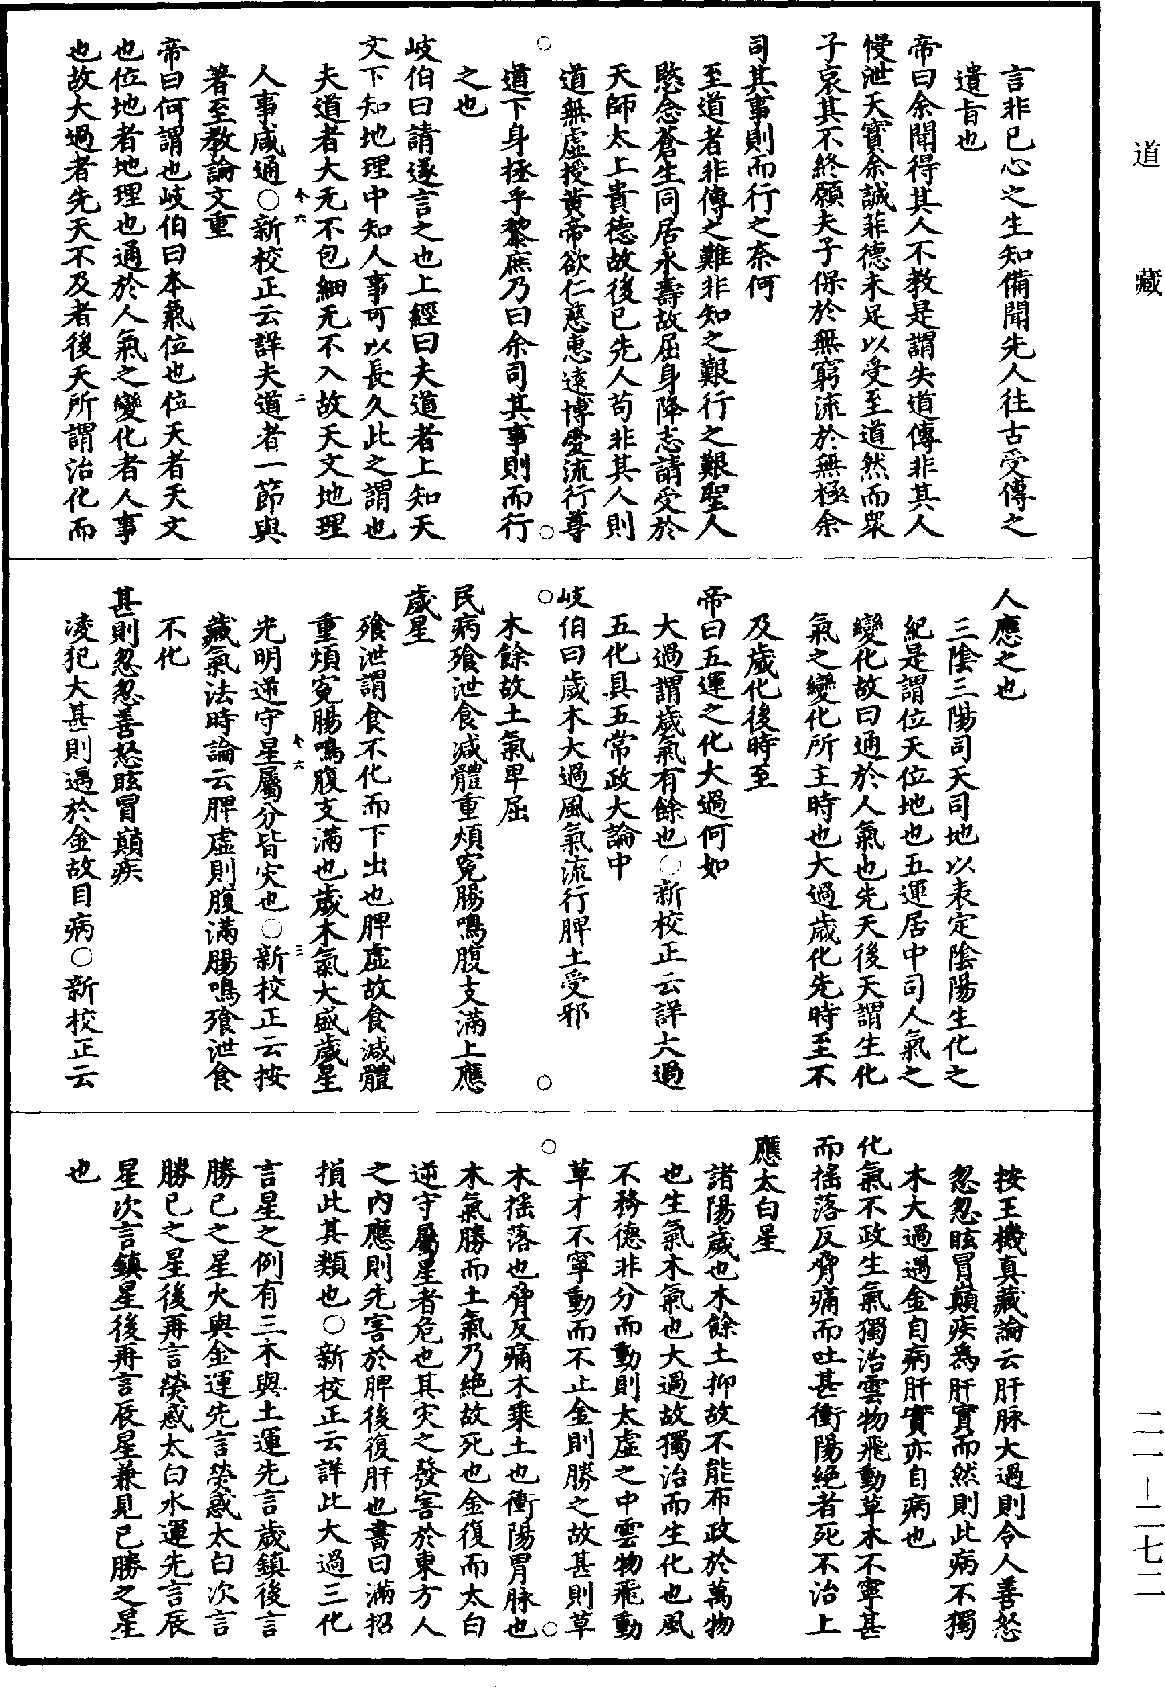 道藏
言非已心之生知備聞先人往古受傳之
遺旨也
帝曰余聞得其人不教是謂失道傳非其人
慢泄天寶余誠菲德未足以受至道然而衆
子哀其不終願夫子保於無窮流於無極余
司其事則而行之奈何
至道者非傳之難非知之艱行之艱聖人
愍念蒼生同居永壽故屈身降志請受於
天師太上貴德故後已先人苟非其人則
道無虛授黃帝欲仁慈惠遠博愛流行尊
道下身拯乎黎庶乃曰余司其事則而行
之也
岐伯曰請遂言之也上經曰夫道者上知天
文下知地理中知人事可以長久此之謂也
夫道者大无不包細无不入故天文地理
人事咸通○新校正云詳夫道者一節與
著至教論文重
帝曰何謂也岐伯曰本氣位也位天者天文
也位地者地理也通於人氣之變化者人事
也故大過者先天不及者後天所謂治化而
人應之也
三陰三陽司天司地以表定陰陽生化之
紀是謂位天位地也五運居中司人氣之
變化故曰通於人氣也先天後天謂生化
氣之變化所主時也大過歲化先時至不
及歲化後時至
帝曰五運之化大過何如
大過謂歲氣有餘也○新校正云詳大過
五化具五常政大論中
岐伯曰歲木大過風氣流行脾土受邪
木餘故土氣卑屈
民病飱泄食減體重煩冤腸鳴腹支滿上應
歲星
飱泄謂食不化而下出也脾虛故食減體
重煩冤腸鳴腹支滿也歲木氣大盛歲星
光明逆守星屬分皆灾也○新校正云按
藏氣法時論云脾虛則腹滿腸鳴飱泄食
不化
甚則忽忽善怒眩冒巔疾
凌犯大甚則遇於金故目病○新校正云
按玉機真藏論云肝脉大過則令人善怒
忽忽眩冒巔疾爲肝實而然則此病不獨
木大過遇金自病肝實亦自病也
化氣不政生氣獨治雲物飛動草木不寧甚
而揺落反脅痛而吐甚衝陽絕者死不治上
應太白星
諸陽歲也木餘土抑故不能布政於萬物
也生氣木氣也大過故獨治而生化也風
不務德非分而動則太虛之中雲物飛動
草才不寧動而不止金則勝之故甚則草
木揺落也脅反痛木乘土也衝陽胃脉也
木氣勝而土氣乃絕故死也金復而太白
逆守屬星者危也其灾之發害於東方人
之內應則先害於脾後復肝也書曰滿招
損此其類也○新校正云詳此大過三化
言星之例有三木與土運先言歲鎮後言
勝已之星火與金運先言熒惑太白次言
勝已之星後再言熒惑太白水運先言辰
星次言鎮星後再言辰星兼見已勝之星
也
二一—二七二